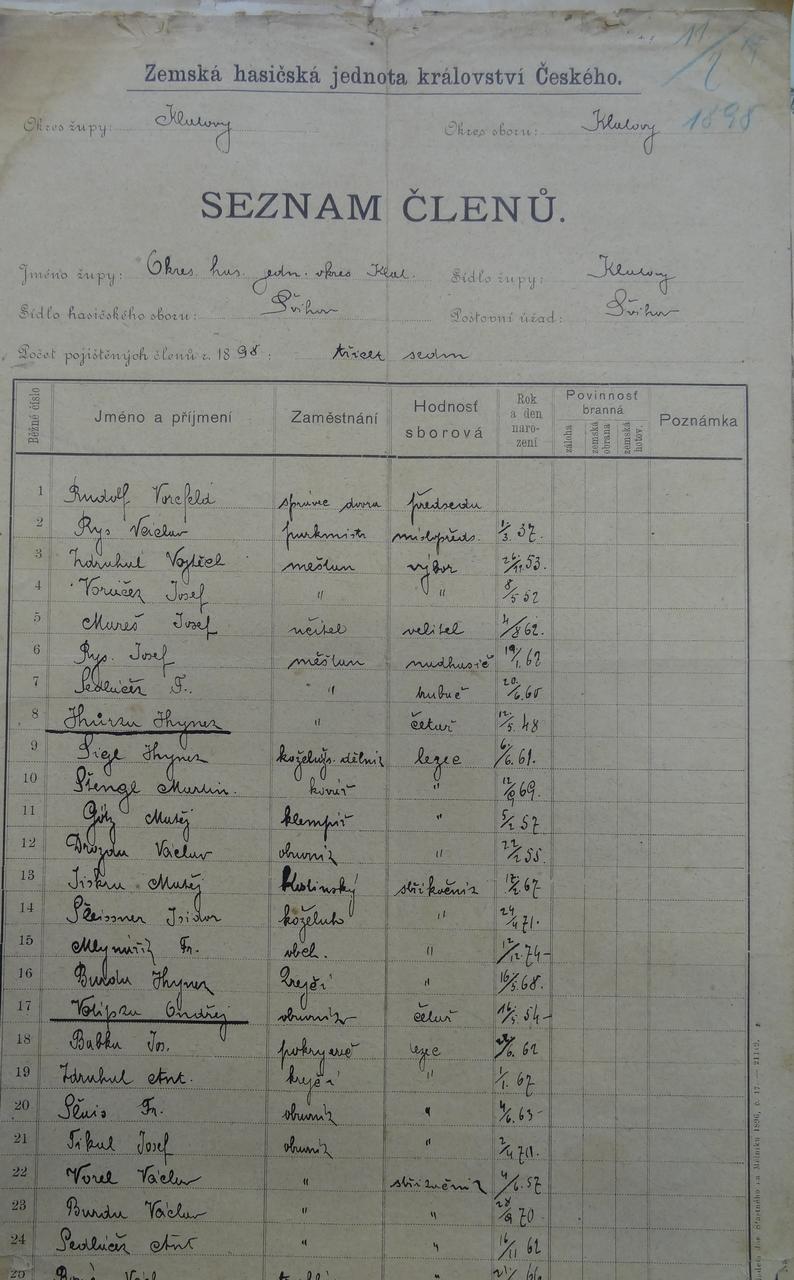 Zemská hasičská jednota království Českého.
1898
Okres župy: Klatovy Okres sboru: Klatovy
SEZNAM ČLENŮ.
Jméno župy: Okres. has. jedn. okres Klat. Sídlo župy: Klatovy
Sídlo hasičského sboru: Švihov Poštovní úřad: Švihov
Počet pojištěných členů r. 1898: třicet sedm
Běžné číslo Jméno a příjmení Zaměstnání Hodnosť sborová Rok a den narození Povinnosť branná záloha zemská obrana zemská hotov. Poznámka
1 Rudolf správce dvora předseda
2 Rys Václav purkmistr místopředs. 1/3 37.
3 Zdruhal Vojtěch měšťan výbor 26/11 53.
4 Voráček Josef " " 8/5 52
5 Mareš Josef učitel velitel 4/8 62.
6 Rys. Josef měšťan 19/1 62
7 Sedláček F. " hubač 20/6. 60
8 Hynek " četař 12/5. 48
9 Sigl Hynek koželužs. dělník lezec 6/6. 61.
10 Štengl Martin. kovář " 12/9 69.
11 Götz Matěj klempíř " 5/2 57
12 Drozda Václav obuvník " 22/2 55.
13 Jiskra Matěj stříkačník 12/2. 67
14 Isidor koželuh " 24/4 71.
15 Mlynařík Fr. obch. " 12/12. 74
16 Burda Hynek krejčí " 16/5. 68.
17 Ondřej obuvník četař 16/5 54
18 Babka Jos. pokrývač lezec /6. 62
19 Zdruhal Ant. krejčí " 1/1. 67
20 Fr. obuvník " 4/6. 63
21 Tikal Josef obuvník " 2/4 70.
22 Vorel Václav " stříkačník 4/6. 57
23 Burda Václav " " 28/9 70
24 Sedláček Ant " " 16/11 62
25